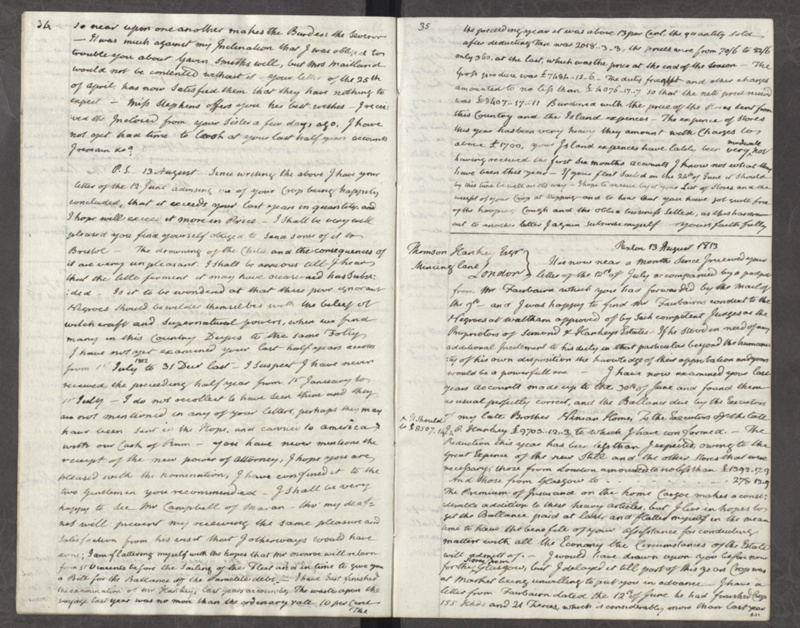 34
so near upon one another makes the Burden the severer
— It was much against my Inclination that I was obliged to
trouble you about Gavin Smiths will, but Mrs Maitland
would not be contented without it — your letter of the 25th
of April has now satisfied them that they have nothing to
expect — Miss Stephens offers you her best wishes — I recei
ved the Inclosed from your Sister a few days ago, I have
not yet had time to look at your last half years accounts
I remain &c
P.S. 13 August Since writing the above I have your
letter of the 12 June advising me of your Crop being happily
concluded, that it exceeds your last years in quantity, and
I hope will exceed it more in Prices — I shall be very well
pleased you find yourself obliged to send some of it to
Bristol — The drowning of the Child and the consequences of
it are very unpleasant I shall be anxious till I hear
that the little ferment it may have occasioned has subsi
ded Is it to be wondered at that these poor ignorant
Negroes should bewilder themselves with the belief of
witchcraft and Supernatural powers, when we find
many in this Country Dupes to the same Folly
I have not yet examined your last half years accounts
from 1st July to 31 Decr last — I suspect I have never
1812
received the preceding half year from 1st January to
1st July — I do not recollect to have seen them and they
are not mentioned in any of your letters, perhaps they may
have been sent in the Hope, and carried to America
with our Cask of Rum — you have never mentioned the
receipt of the new power of attorney, I hope you are
pleased with the nomination, I have confined it to the
two Gentlemen you recommended — I shall be very
happy to see Mr Campbell of Maran — tho' my deaf-
ness will prevent my receiving the same pleasure and
Satisfaction from his visit that I otherways would have
done; I am flattering myself with the hopes that Mr Monroe will return
from St Vincents before the Sailing of the Fleet and in time to give you
a Bill for the Ballance of the debt — I have just finished
the examination of Mr Hankeys last years accounts. The waste upon the
voyage last year was no more than the ordinary rate 10 per Cent
The
35
the preceding year it was above 13 per Cent, the quantity sold
after deducting Tare was 2018.3.3, the prices were from 70/6 to 82/6
only 360, at the last, which was the price at the end of the season — The
Gross produce was £7484.15.6. The duty freight and other charges
amounted to no less than £4076.17.7 so that the nett proceeds
was £3407.17.11 Burdened with the price of the Stores sent from
this Country and the Island expences — The expence of Stores
this year has been very heavy they amount with Charges to
above £1700, your Island expences have lately been very moderate, not
having received the first six months accounts I know not what they
have been this year — If your fleet sailed on the 25th of June it should
by this time be well on its way — I hope to receive by it your List of Stores and the
receipt of your Crop at shipping and to hear that you have got quite free
of the hooping Cough and the other business settled, as this has run
out to another letter I again subscribe myself yours faithfully
Paxton 13 August 1813
Thomson Hankey Esqr
Mincing Lane
London
It is now near a month since I received your
letter of the 12th of July accompanied by a packet
from Mr Fairbairn which you had forwarded by the mail of
the 9th — and I was happy to find Mr Fairbairns conduct to the
Negroes at was approved of by such competent Judges as the
Proprietors of Simond & Hankeys Estates If he stood in need of any
additional Incitement to his duty in that particular beyond the humani
ty of his own disposition the knowledge of their approbation and yours
would be a powerful one — I have now examined your last
years accounts made up to the 30th of June and found them
as usual perfectly correct, and the Ballance due by the Executors
of my late Brother Ninian Home, to the Executors of the late
Jn Hankey £9703.12.3 to which I have conformed — The
x It should
be £8507.14.
Reduction this year has been less than I expected, owing to the
great Expence of the new Still and the other Stores that were
necessary, those from London amounted to no less than £1393.17.9
And those from Glasgow to — 278.13.9
The Premium of Insurance on the home Cargoe makes a consi
derable addition to these heavy articles, but I live in hopes to
get the Ballance paid at last, and flatter myself in the mean
time to have the benefit of your assistance for conducting
matters with all the Economy the Circumstances of the Estate
will admit of. — I would have drawn upon you before now
for the Stores from Glasgow, but I delayed it till part of this years Crop was
at Market being unwilling to put you in advance I have a
letter from Fairbairn dated the 12th of June he had finished Crop
155 Hhds and 21 Tierces, which is considerably more than last year